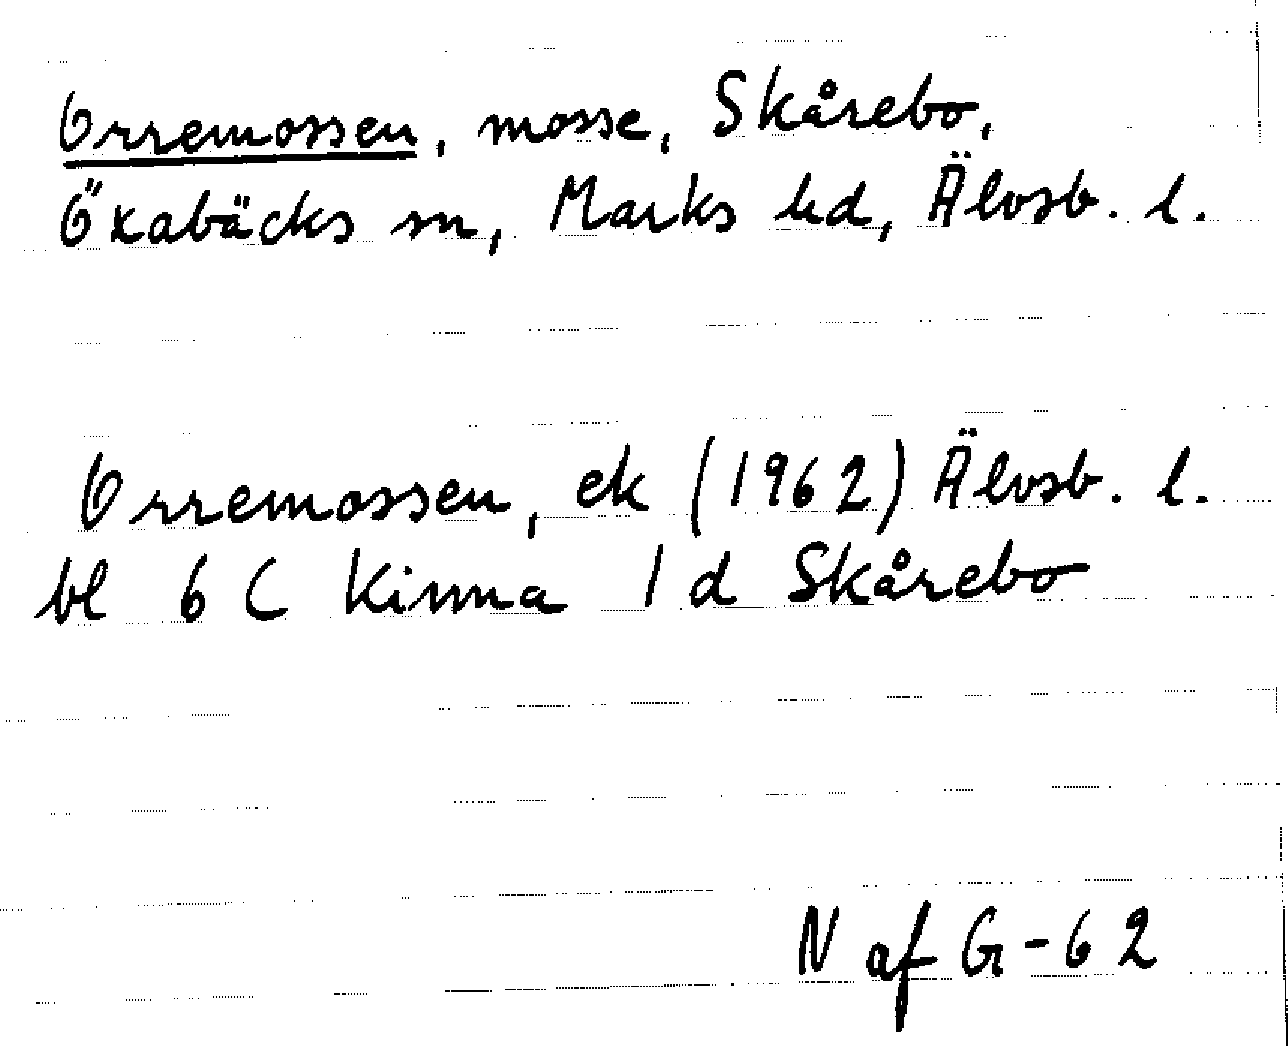 Orremossen, mosse, Skårebo,
Öxabäcks sn, Marks hd, Älvsb. l.
Orremossen, ek (1962) Älvsb. l.
bl 6 C Kinna 1 d Skårebo
N af G-62